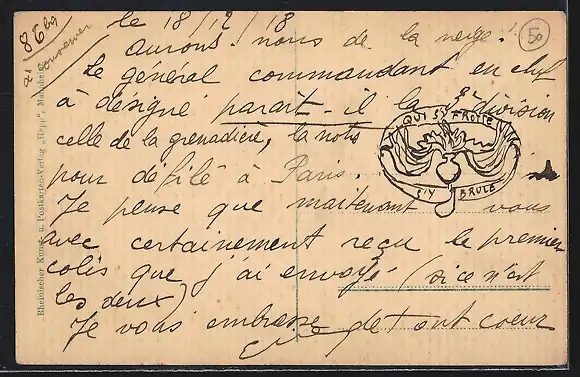 86 bg
le 18/12/18
50
aurons-nous de la neige!
Le général commandant en chef
à désigné parait-il la 5e division
celle de la grenadière, la notre
QUI S'Y FROTTE
S'Y BRULE
pour défilé à Paris.
Je pense que maitenant vous
avec certainement reçu le premier
colis que j'ai envoyé (si ce n'est
les deux)
Je vous embrasse de tout coeur
Rheinischer Kunst- u. Postkarten-Verlag „Hepp",